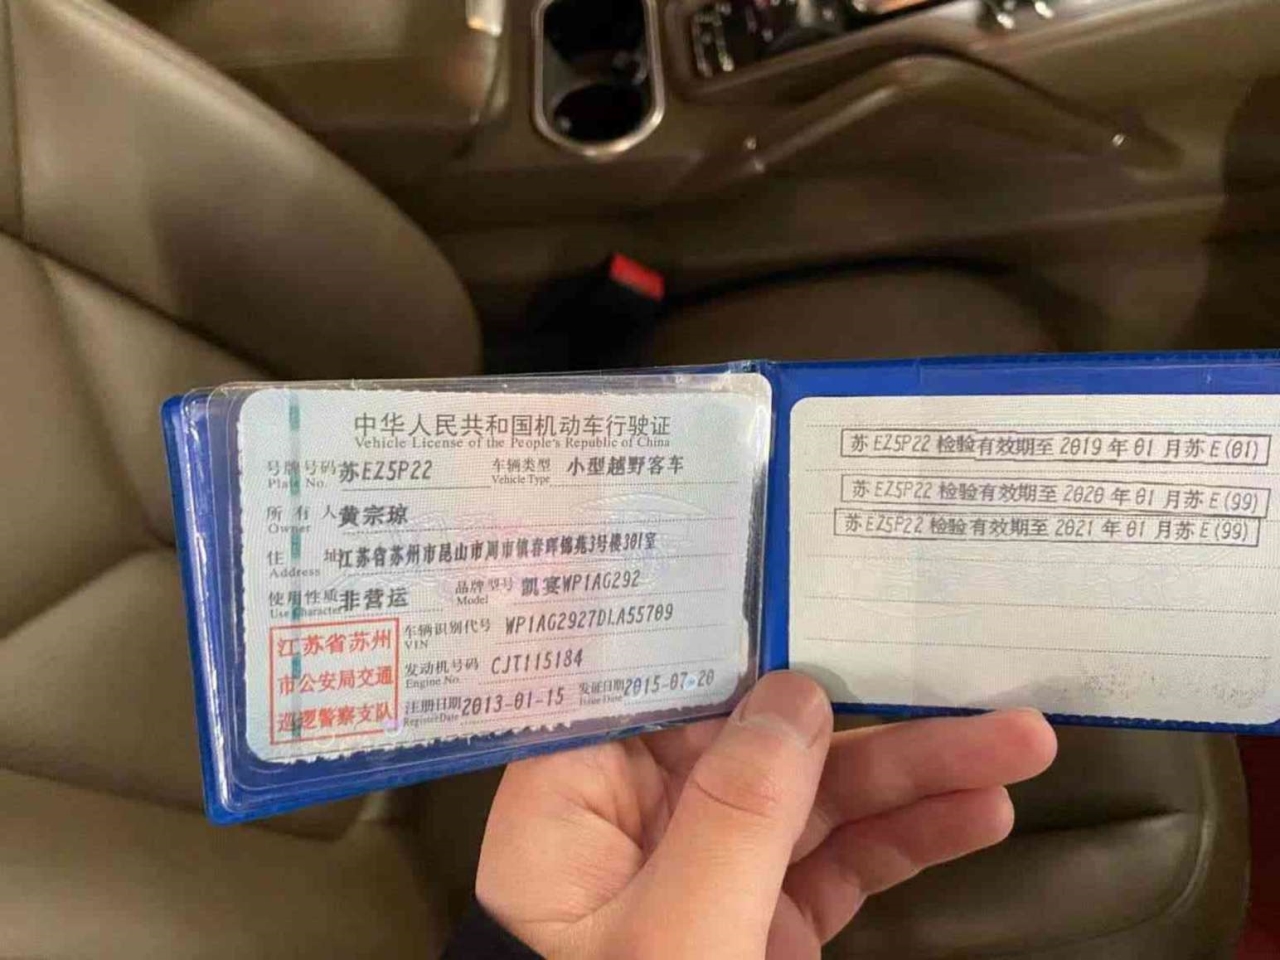 中华人民共和国机动车行驶证
Vehicle License of the People's Republic of China
号牌号码 苏EZ5P22 车辆类型 小型越野客车
Plate No. Vehicle Type
所有人 黄宗琼
Owner
住址 江苏省苏州市昆山市周市镇春晖锦苑3号楼301室
Address
使用性质 非营运 品牌型号 凯宴WP1AG292
Use Character Model
车辆识别代号 WP1AG2927DLA55709
VIN
发动机号码 CJT115184
Engine No.
注册日期 2013-01-15 发证日期 2015-07-20
Register Date Issue Date
江苏省苏州
市公安局交通
巡逻警察支队
苏EZ5P22 检验有效期至 2019 年 01 月苏E(01)
苏EZ5P22 检验有效期至 2020 年 01 月苏E(99)
苏EZ5P22 检验有效期至 2021 年 01 月苏E(99)